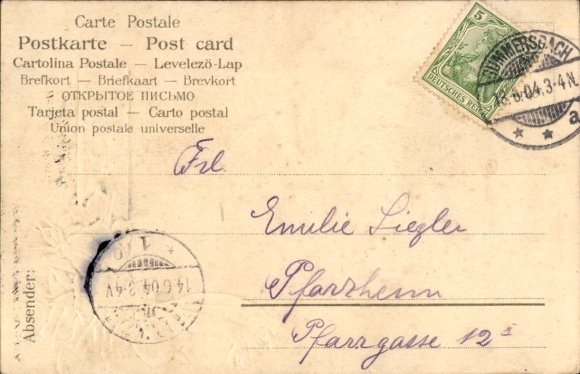 Carte Postale
Postkarte — Post card
Cartolina Postale — Levelezö-Lap
Brefkort — Briefkaart — Brevkort
ОТКРЫТОЕ ПИСЬМО
Tarjeta postal — Carto postal
Union postale universelle
5
DEUTSCHES REICH
GUMMERSBACH
13.6.04.3-4N.
* * a
Frl.
Emilie Siegler
Pforzheim
Pfarrgasse 12
* 1 h0
14.6.04.3-4V
Absender: